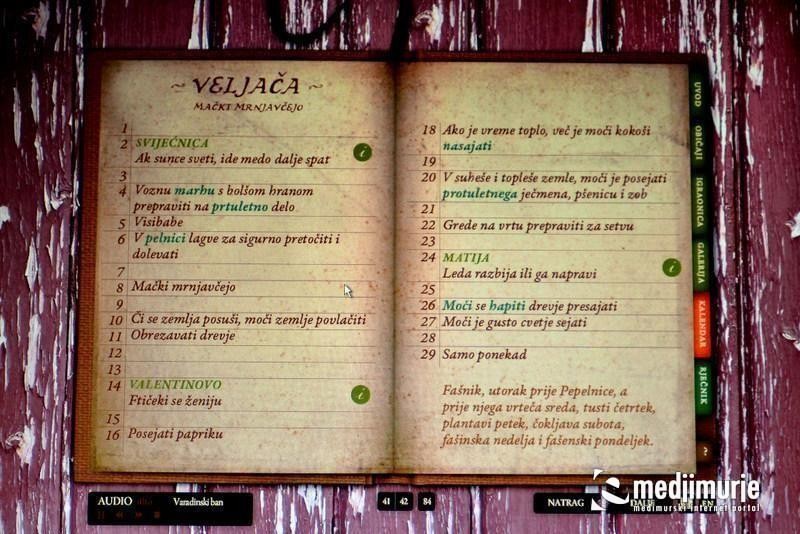 ~ VELJAČA ~
MAČKT MRNJAVČEJO
1
2 SVIJEĆNICA
Ak sunce sveti, ide medo dalje spat
3
4 Voznu marhu s bolšom hranom
prepraviti na prtuletno delo
5 Visibabe
6 V pelnici lagve za sigurno pretočiti i
dolevati
7
8 Mački mrnjavčejo
9
10 Či se zemlja posuši, moči zemlje povlačiti
11 Obrezavati drevje
12
13
14 VALENTINOVO
Ftičeki se ženiju
15
16 Posejati papriku
18 Ako je vreme toplo, već je moči kokoši
nasajati
19
20 V suheše i topleše zemle, moči je posejati
protuletnega ječmena, pšenicu i zob
21
22 Grede na vrtu prepraviti za setvu
23
24 MATIJA
Leda razbija ili ga napravi
25
26 Moči se hapiti drevje presajati
27 Moči je gusto cvetje sejati
28
29 Samo ponekad
Fašnik, utorak prije Pepelnice, a
prije njega vrteča sreda, tusti četrtek,
plantavi petek, čokljava subota,
fašinska nedelja i fašenski pondeljek.
UVOD
OBIČAJI
IGRAONICA
GALERIJA
KALENDAR
RJEČNIK
?
AUDIO Varadinski ban
41 42 84
NATRAG
DALJE
EN
medjimurje
međimurski internet portal